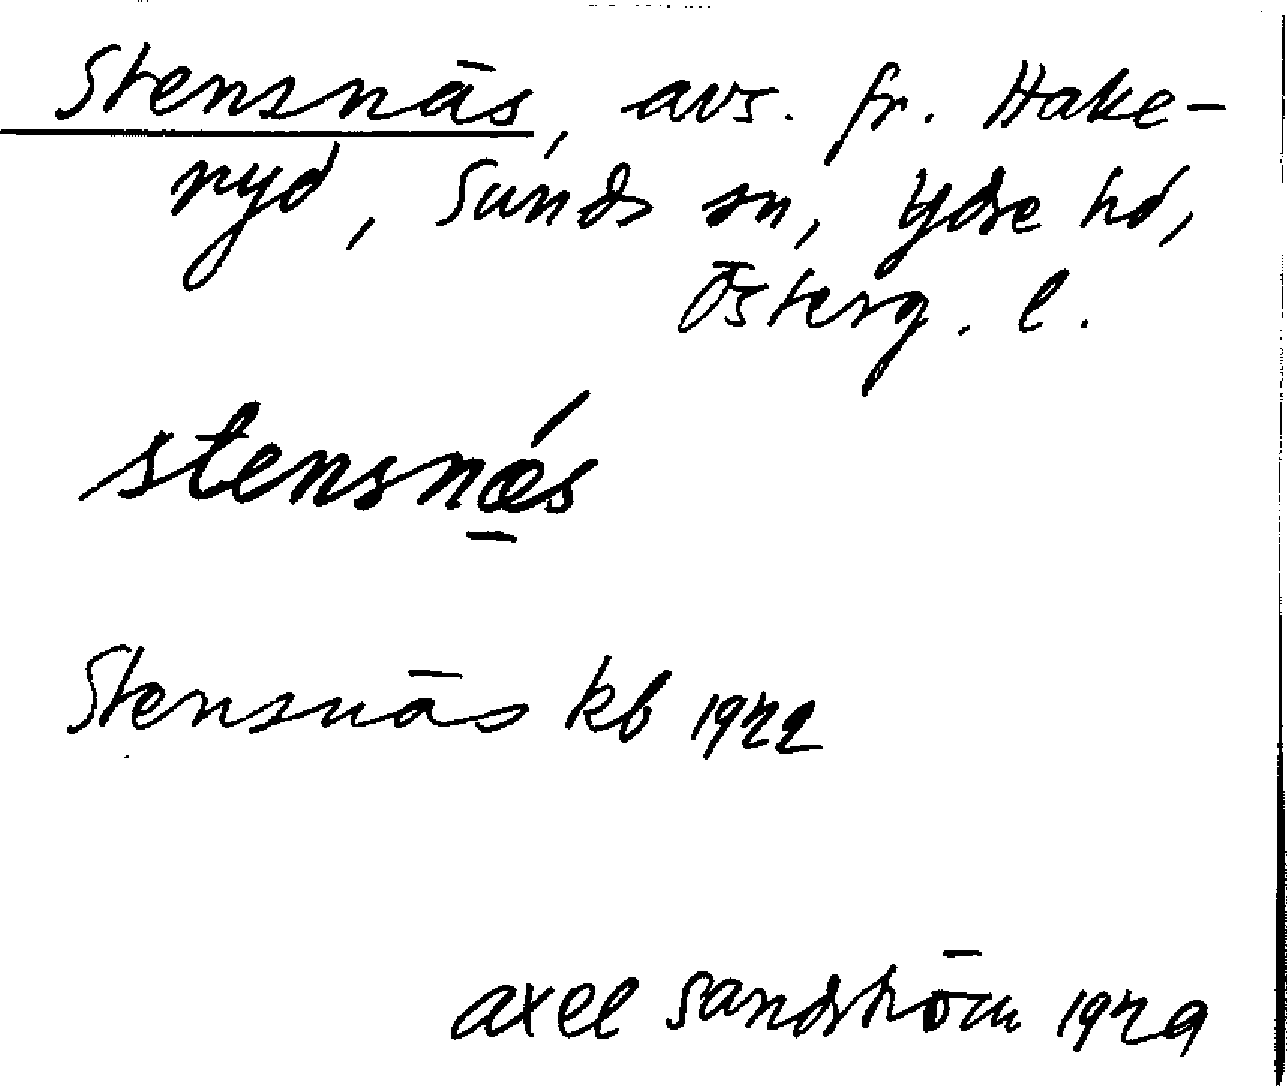 Stensnäs, avs. fr. Hake-
ryd, Sunds sn, Ydre hd,
Österg. l.
stensnǽ̱s
Stensnäs kb 1922
Axel Sandström 1929